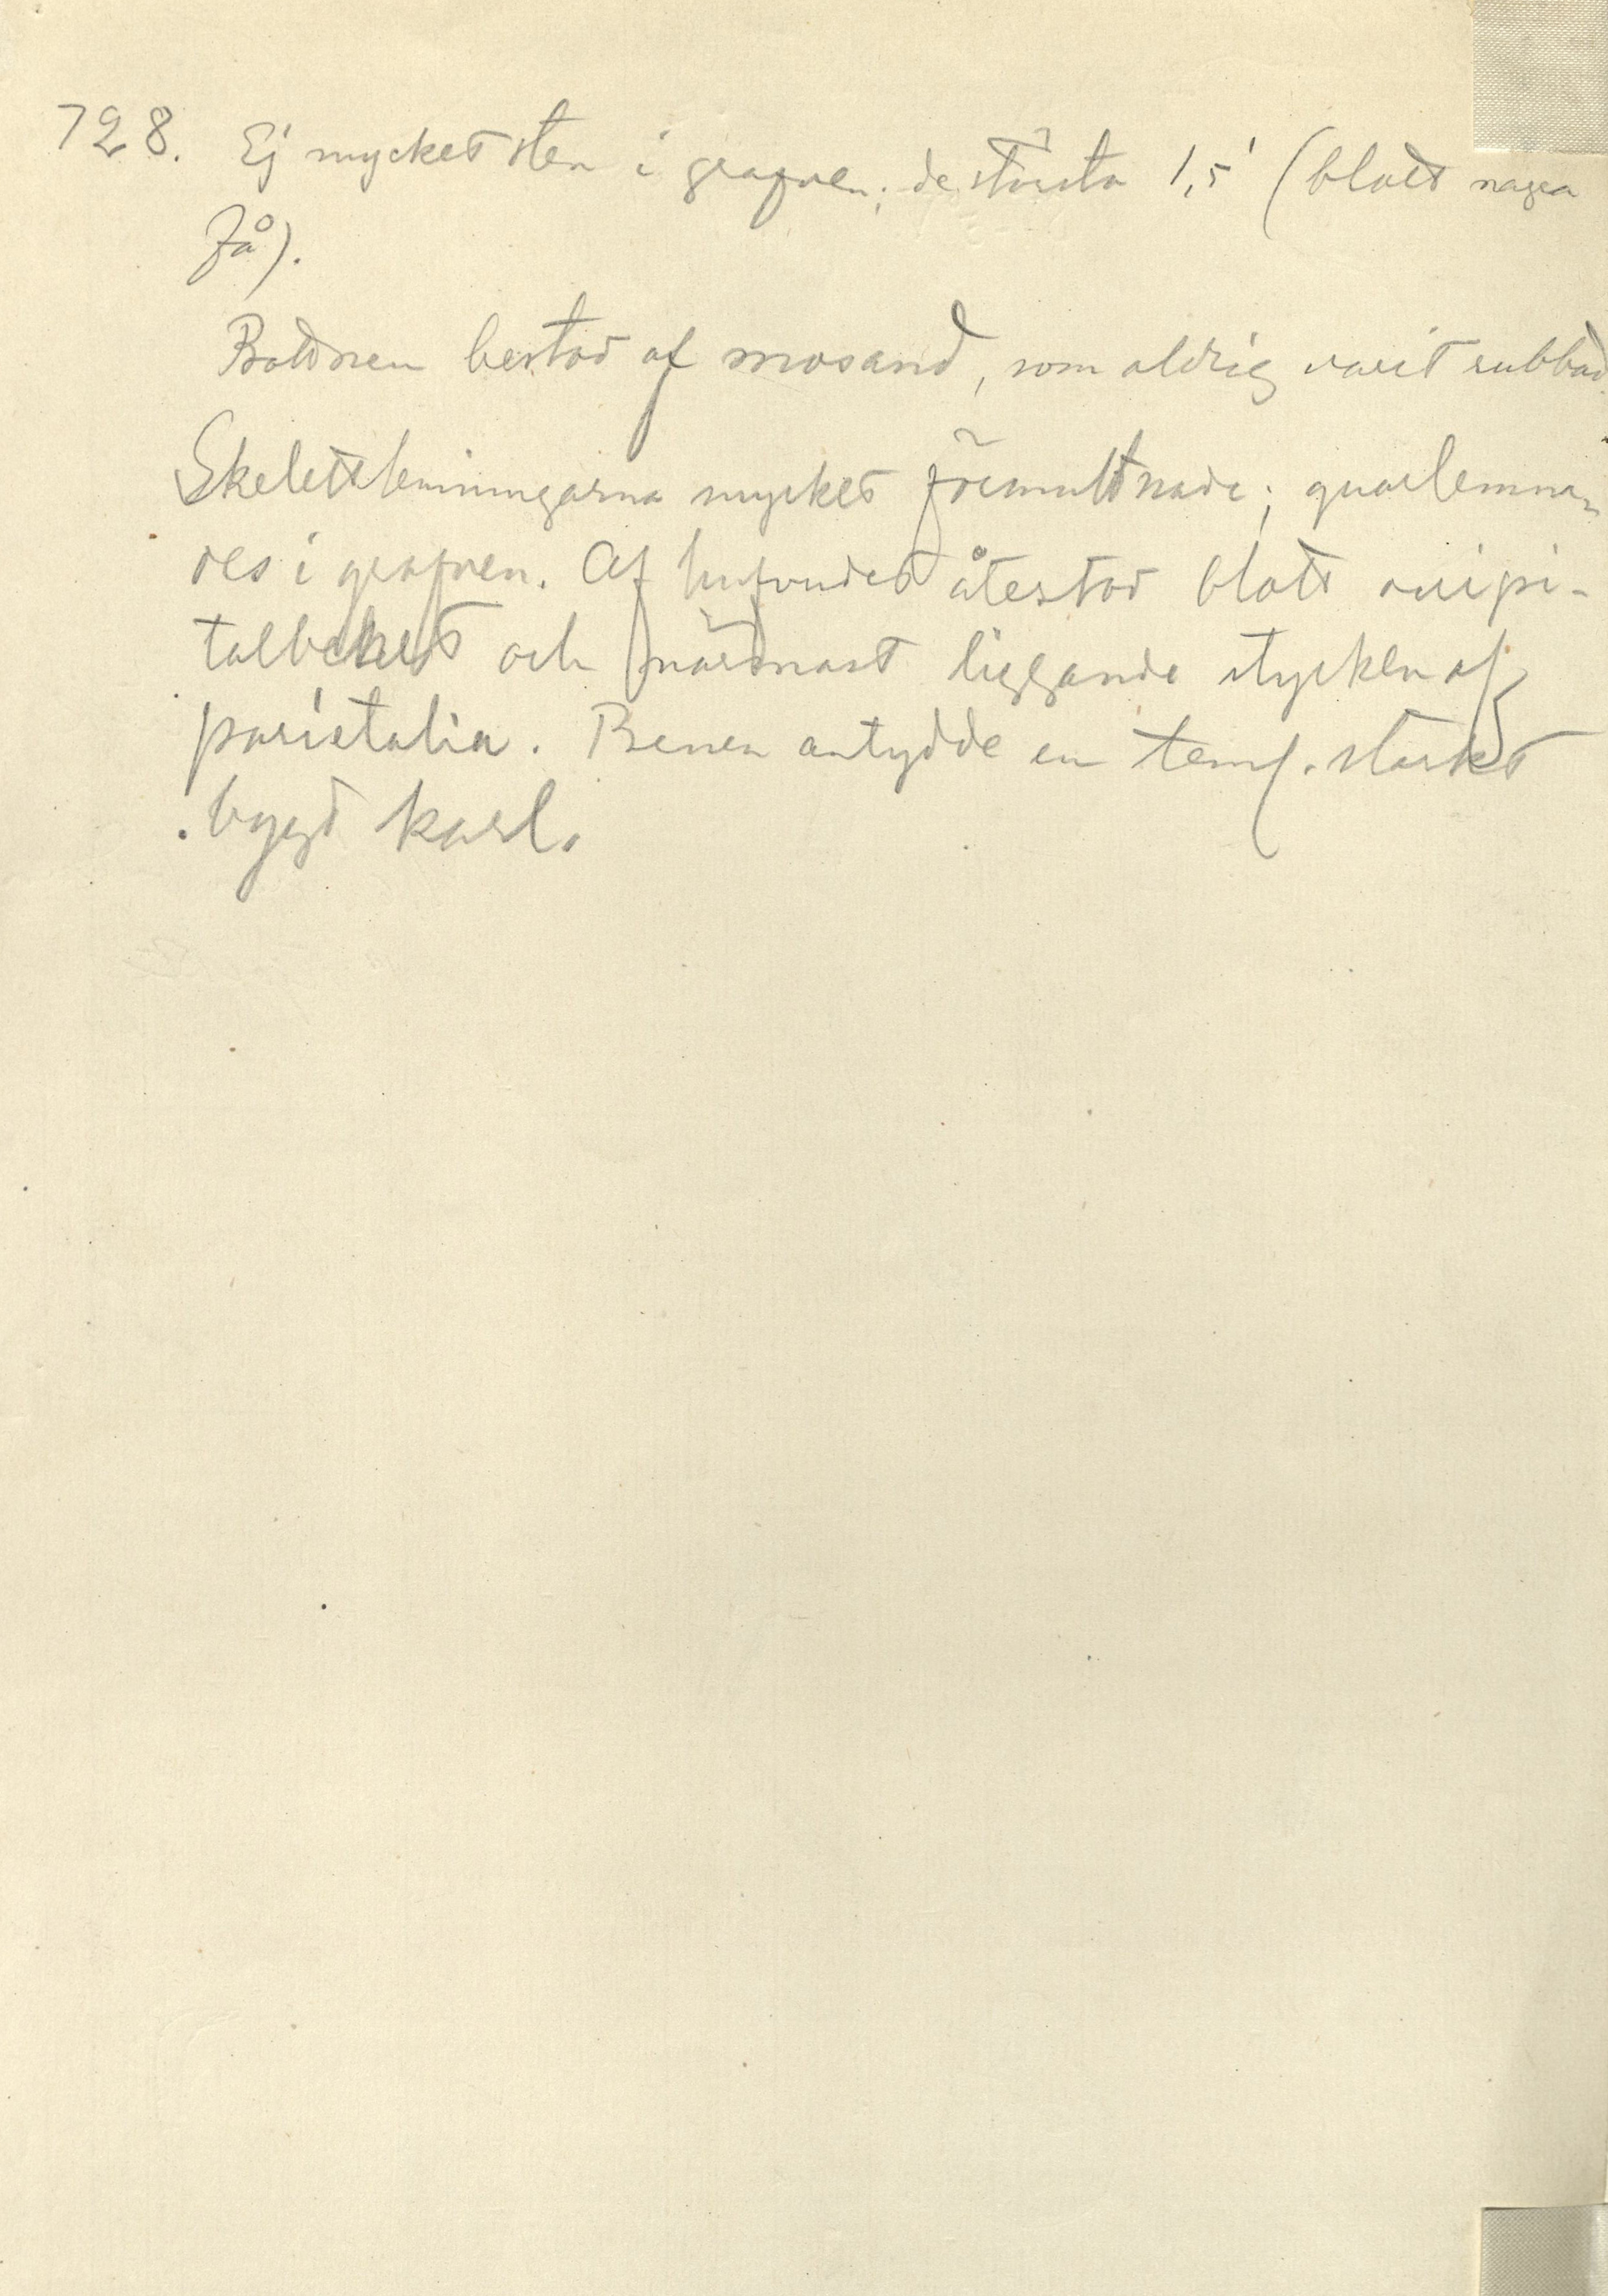 728. Ej mycket sten i grafven; de största 1,5' (blott några
få).
Bottnen bestod af mosand, som aldrig varit rubbad.
Skelettlemningarna mycket förmultnade; quarlemna-
des i grafven. Af hufvudet återstod blott occipi-
talbenet och närmast liggande stycken af
parietalia. Benen antydde en teml. starkt
bygd karl.